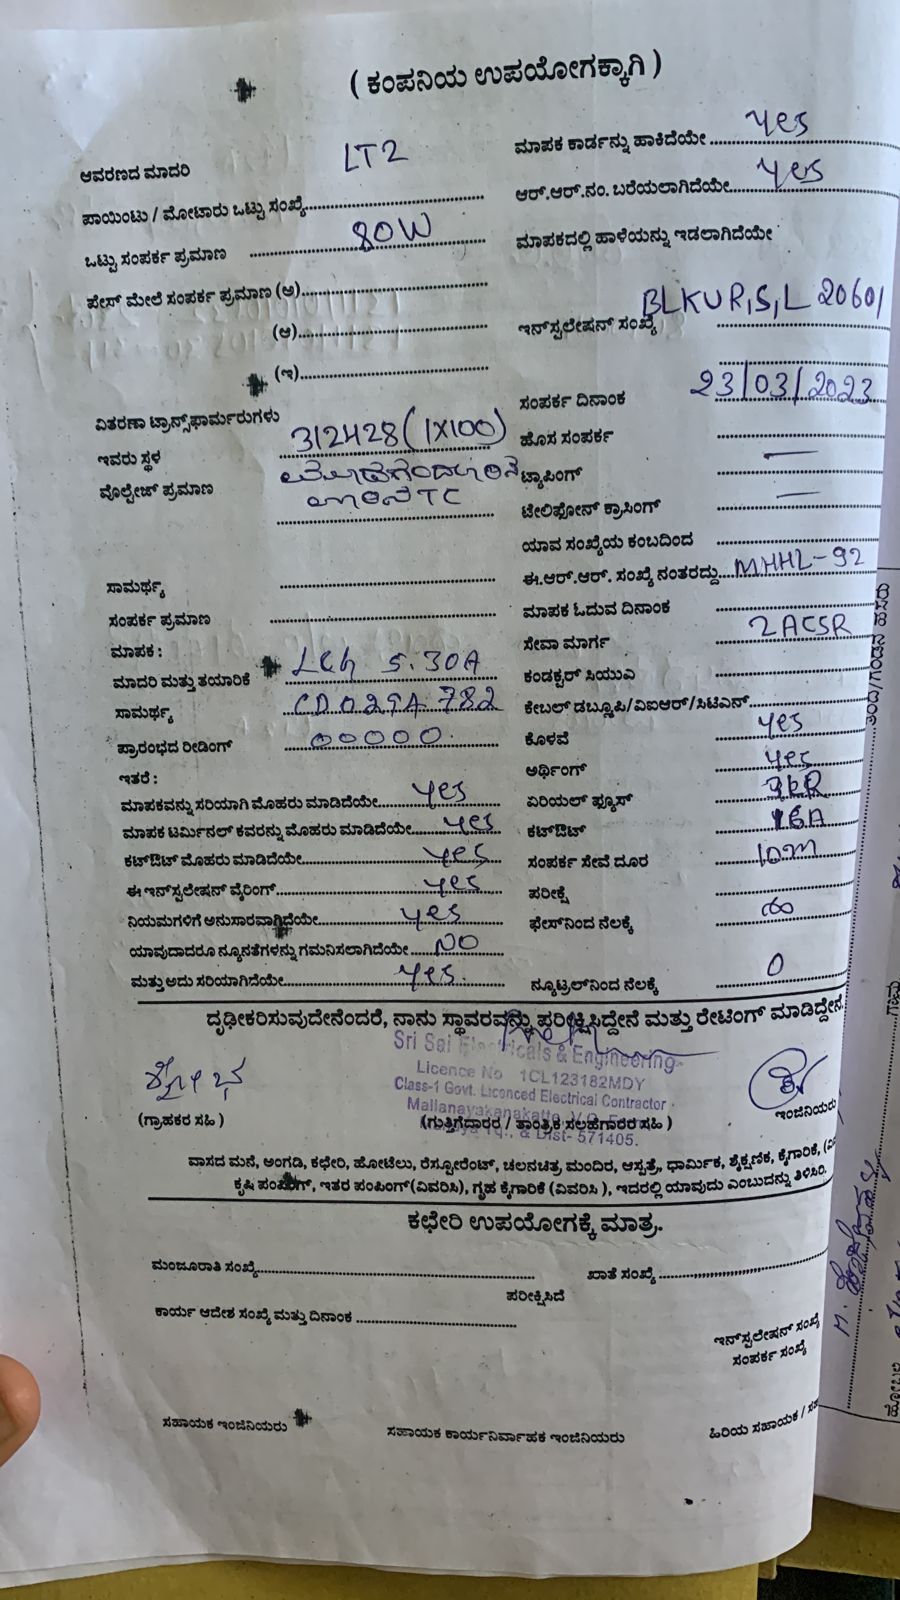 ( ಕಂಪನಿಯ ಉಪಯೋಗಕ್ಕಾಗಿ )
ಆವರಣದ ಮಾದರಿ LT2
ಪಾಯಿಂಟು / ಮೋಟಾರು ಒಟ್ಟು ಸಂಖ್ಯೆ
ಒಟ್ಟು ಸಂಪರ್ಕ ಪ್ರಮಾಣ 80W
ಪೇಸ್ ಮೇಲೆ ಸಂಪರ್ಕ ಪ್ರಮಾಣ (ಅ)
(ಆ)
(ಇ)
ವಿತರಣಾ ಟ್ರಾನ್ಸ್‌ಫಾರ್ಮರುಗಳು
ಇವರು ಸ್ಥಳ 312428 (1X100)
ವೊಲ್ಟೇಜ್ ಪ್ರಮಾಣ
TC
ಸಾಮರ್ಥ್ಯ
ಸಂಪರ್ಕ ಪ್ರಮಾಣ
ಮಾಪಕ :
ಮಾದರಿ ಮತ್ತು ತಯಾರಿಕೆ 5.30A
ಸಾಮರ್ಥ್ಯ 782
ಪ್ರಾರಂಭದ ರೀಡಿಂಗ್ 00000
ಇತರೆ :
ಮಾಪಕವನ್ನು ಸರಿಯಾಗಿ ಮೊಹರು ಮಾಡಿದೆಯೇ yes
ಮಾಪಕ ಟರ್ಮಿನಲ್ ಕವರನ್ನು ಮೊಹರು ಮಾಡಿದೆಯೇ yes
ಕಟ್‌ಔಟ್ ಮೊಹರು ಮಾಡಿದೆಯೇ yes
ಈ ಇನ್‌ಸ್ಪಲೇಷನ್ ವೈರಿಂಗ್ yes
ನಿಯಮಗಳಿಗೆ ಅನುಸಾರವಾಗಿದೆಯೇ yes
ಯಾವುದಾದರೂ ನ್ಯೂನತೆಗಳನ್ನು ಗಮನಿಸಲಾಗಿದೆಯೇ NO
ಮತ್ತು ಅದು ಸರಿಯಾಗಿದೆಯೇ yes
ಮಾಪಕ ಕಾರ್ಡನ್ನು ಹಾಕಿದೆಯೇ yes
ಆರ್.ಆರ್.ನಂ. ಬರೆಯಲಾಗಿದೆಯೇ yes
ಮಾಪಕದಲ್ಲಿ ಹಾಳೆಯನ್ನು ಇಡಲಾಗಿದೆಯೇ
ಇನ್‌ಸ್ಪಲೇಷನ್ ಸಂಖ್ಯೆ BLKUR,S,L 20601
ಸಂಪರ್ಕ ದಿನಾಂಕ 23/03/2023
ಹೊಸ ಸಂಪರ್ಕ
ಟ್ಯಾಪಿಂಗ್ —
ಟೇಲಿಫೋನ್ ಕ್ರಾಸಿಂಗ್ —
ಯಾವ ಸಂಖ್ಯೆಯ ಕಂಬದಿಂದ
ಈ.ಆರ್.ಆರ್. ಸಂಖ್ಯೆ ನಂತರದ್ದು MHHL-92
ಮಾಪಕ ಓದುವ ದಿನಾಂಕ
ಸೇವಾ ಮಾರ್ಗ 2ACSR
ಕಂಡಕ್ಟರ್ ಸಿಯುಎ
ಕೇಬಲ್ ಡಬ್ಲ್ಯೂಪಿ/ವಿಐಆರ್/ಸಿಟಿಎನ್
ಕೊಳವೆ yes
ಅರ್ಥಿಂಗ್ yes
ಏರಿಯಲ್ ಫ್ಯೂಸ್
ಕಟ್‌ಔಟ್ 16A
ಸಂಪರ್ಕ ಸೇವೆ ದೂರ 10m
ಪರೀಕ್ಷೆ
ಫೇಸ್‌ನಿಂದ ನೆಲಕ್ಕೆ ∞
ನ್ಯೂಟ್ರಲ್‌ನಿಂದ ನೆಲಕ್ಕೆ 0
ದೃಢೀಕರಿಸುವುದೇನೆಂದರೆ, ನಾನು ಸ್ಥಾವರವನ್ನು ಪರೀಕ್ಷಿಸಿದ್ದೇನೆ ಮತ್ತು ರೇಟಿಂಗ್ ಮಾಡಿದ್ದೇನೆ.
Sri Sai Electricals & Engineering
Licence No 1CL123182MDY
Class-1 Govt. Licenced Electrical Contractor
Mallanayakanakatte, V.C.
Tq., & Dist- 571405.
(ಗ್ರಾಹಕರ ಸಹಿ ) (ಗುತ್ತಿಗೆದಾರರ / ತಾಂತ್ರಿಕ ಸಲಹೆಗಾರರ ಸಹಿ ) ಇಂಜಿನಿಯರು
ವಾಸದ ಮನೆ, ಅಂಗಡಿ, ಕಛೇರಿ, ಹೋಟೆಲು, ರೆಸ್ಟೋರೆಂಟ್, ಚಲನಚಿತ್ರ ಮಂದಿರ, ಆಸ್ಪತ್ರೆ, ಧಾರ್ಮಿಕ, ಶೈಕ್ಷಣಿಕ, ಕೈಗಾರಿಕೆ,
ಕೃಷಿ ಪಂಪಿಂಗ್, ಇತರ ಪಂಪಿಂಗ್(ವಿವರಿಸಿ), ಗೃಹ ಕೈಗಾರಿಕೆ (ವಿವರಿಸಿ ), ಇದರಲ್ಲಿ ಯಾವುದು ಎಂಬುದನ್ನು ತಿಳಿಸಿರಿ.
ಕಛೇರಿ ಉಪಯೋಗಕ್ಕೆ ಮಾತ್ರ.
ಮಂಜೂರಾತಿ ಸಂಖ್ಯೆ ಖಾತೆ ಸಂಖ್ಯೆ
ಪರೀಕ್ಷಿಸಿದೆ
ಕಾರ್ಯ ಆದೇಶ ಸಂಖ್ಯೆ ಮತ್ತು ದಿನಾಂಕ
ಇನ್‌ಸ್ಪಲೇಷನ್ ಸಂಖ್ಯೆ
ಸಂಪರ್ಕ ಸಂಖ್ಯೆ
ಸಹಾಯಕ ಇಂಜಿನಿಯರು ಸಹಾಯಕ ಕಾರ್ಯನಿರ್ವಾಹಕ ಇಂಜಿನಿಯರು ಹಿರಿಯ ಸಹಾಯಕ /